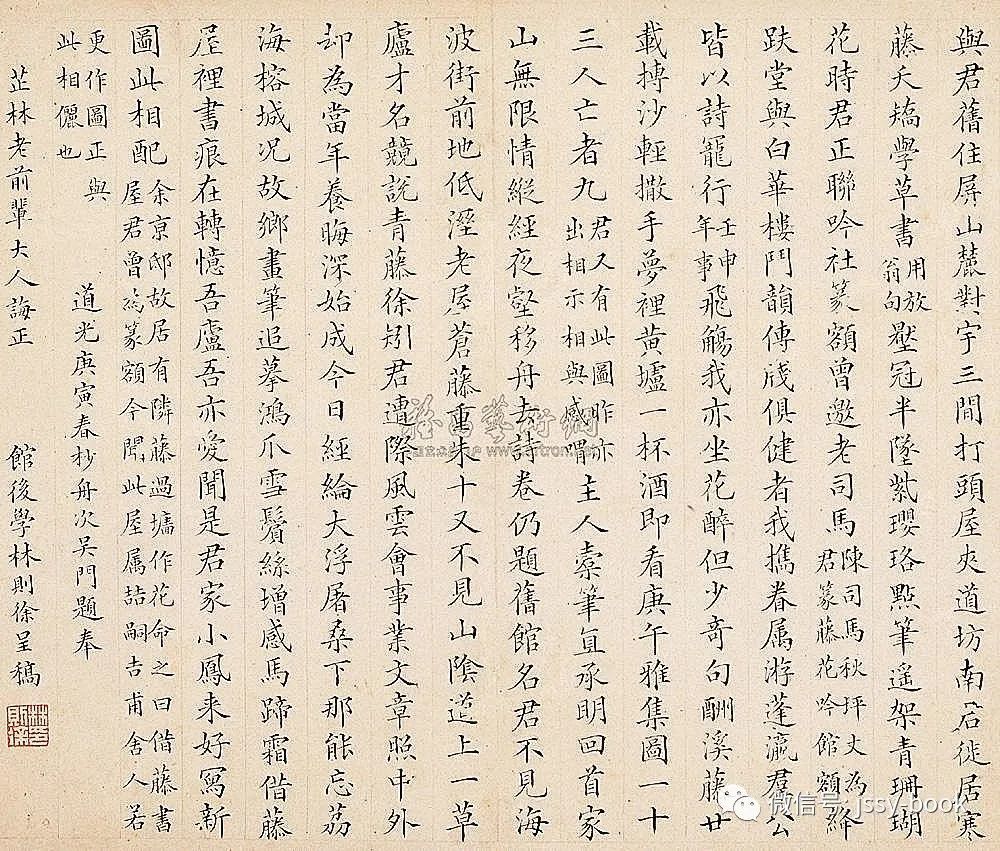 與君舊住屏山麓對宇三間打頭屋夾道坊南君徙居寒
藤夭矯學草書用放翁句壓冠半墜紫瓔珞點筆遥架青珊瑚
花時君正聯吟社篆額曾邀老司馬陳司馬秋坪丈為君篆藤花吟館額絳
跗堂與白華樓鬥韻傳牋俱健者我攜眷属游蓬瀛羣公
皆以詩寵行壬申年事飛觴我亦坐花醉但少奇句酬溪藤廿
載摶沙輕撒手夢裡黄壚一杯酒即看庚午雅集圖一十
三人亡者九君又有此圖昨亦出相示相與感喟主人橐筆直承明回首家
山無限情縱經夜壑移舟去詩卷仍題舊館名君不見海
波街前地低溼老屋蒼藤重朱十又不見山陰道上一草
廬才名競說青藤徐矧君遭際風雲會事業文章照中外
却為當年養晦深始成今日經綸大浮屠桑下那能忘荔
海榕城况故鄉畫筆追摹鴻爪雪鬢絲增感馬蹄霜偕藤
屋裡書痕在轉憶吾廬吾亦愛聞是君家小鳳来好寫新
圖此相配余京邸故居有隣藤過墉作花命之曰偕藤書屋君曾為篆額今聞此屋属喆嗣吉甫舍人若
更作圖正與此相儷也
道光庚寅春杪舟次吴門題奉
芷林老前輩大人誨正
館後學林則徐呈稿
微信号: jssy-book